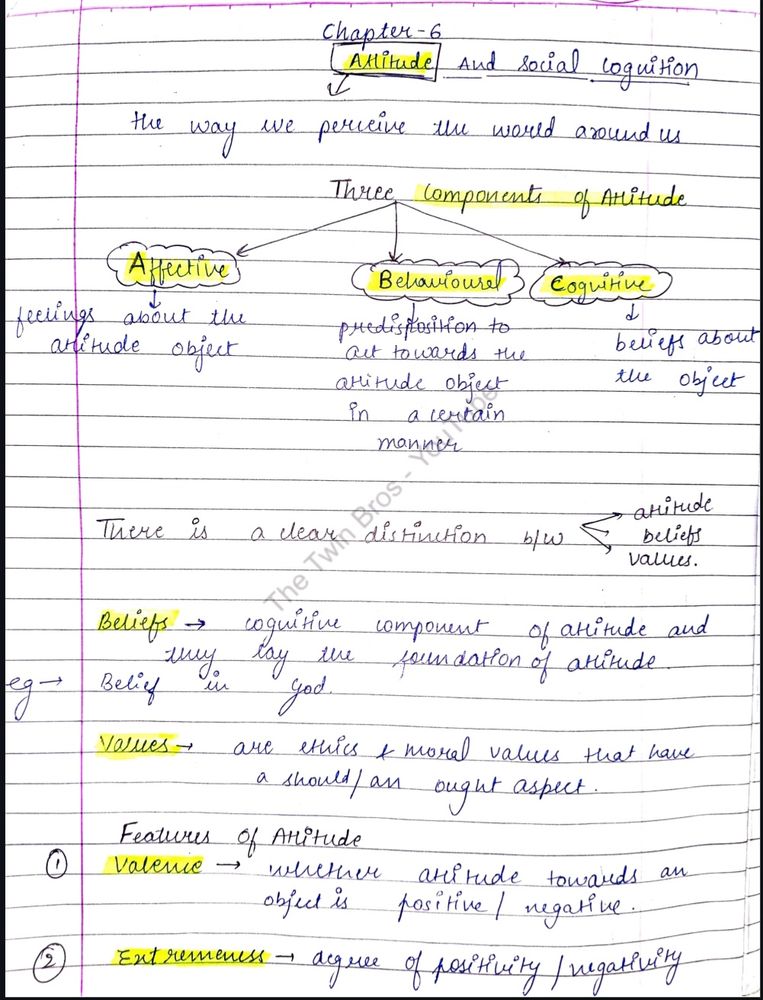 Chapter-6
Attitude And Social Cognition
the way we perceive the world around us
Three Components of Attitude
Affective
feelings about the
attitude object
Behavioural
predisposition to
act towards the
attitude object
in a certain
manner
Cognitive
beliefs about
the object
There is a clear distinction b/w
attitude
beliefs
values.
Beliefs → cognitive component of attitude and
they lay the foundation of attitude.
eg → Belief in God.
Values → are ethics & moral values that have
a should/an ought aspect.
Features of Attitude
① Valence → whether attitude towards an
object is positive/negative.
② Extremeness → degree of positivity/negativity
The Twin Bros - YouTube